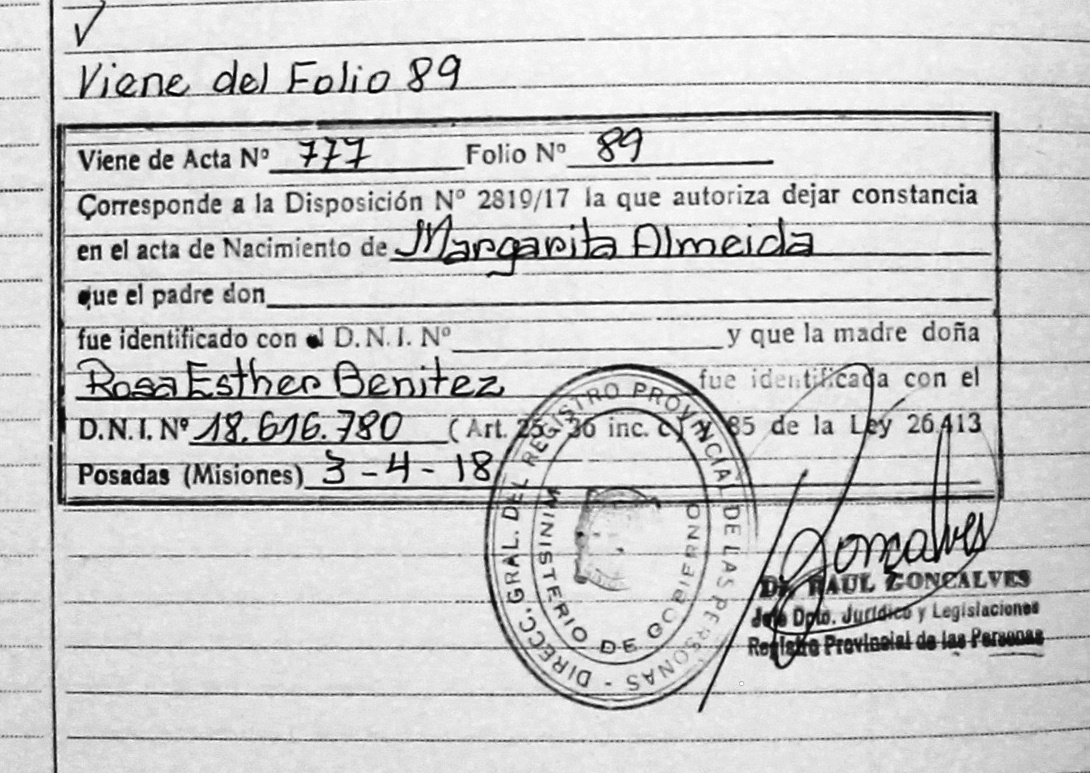 Viene del Folio 89
Viene de Acta Nº 777 Folio Nº 89
Corresponde a la Disposición Nº 2819/17 la que autoriza dejar constancia
en el acta de Nacimiento de Margarita Almeida
que el padre don
fue identificado con el D.N.I. Nº y que la madre doña
Rosa Esther Benitez fue identificada con el
D.N.I. Nº 18.616.780 (Art. 25, 36 inc. c) y 85 de la Ley 26.413
Posadas (Misiones) 3-4-18
DIRECC. GRAL. DEL REGISTRO PROVINCIAL DE LAS PERSONAS -
MINISTERIO DE GOBIERNO
Gonçalves
Dr. RAUL GONCALVES
Jefe Dpto. Jurídico y Legislaciones
Registro Provincial de las Personas